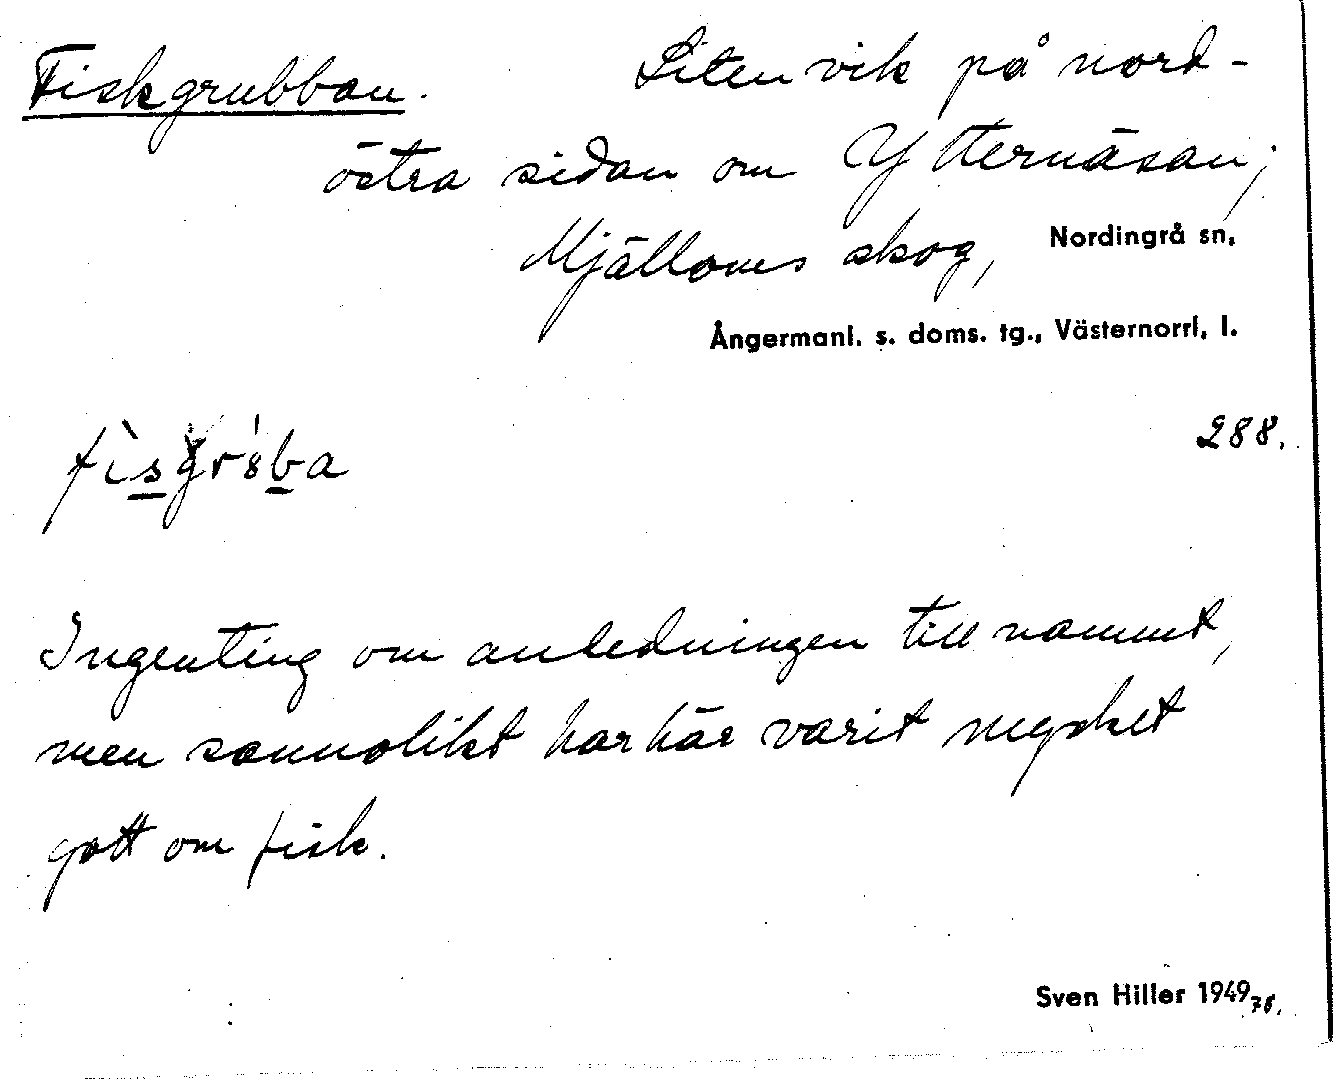 Fiskgrubban. Liten vik på nord-
östra sidan om Ytternäsan;
Mjälloms skog, Nordingrå sn,
Ångermanl. s. doms. tg., Västernorrl, l.
288.
Ingenting om anledningen till namnet,
men sannolikt har här varit mycket
gott om fisk.
Sven Hiller 1949